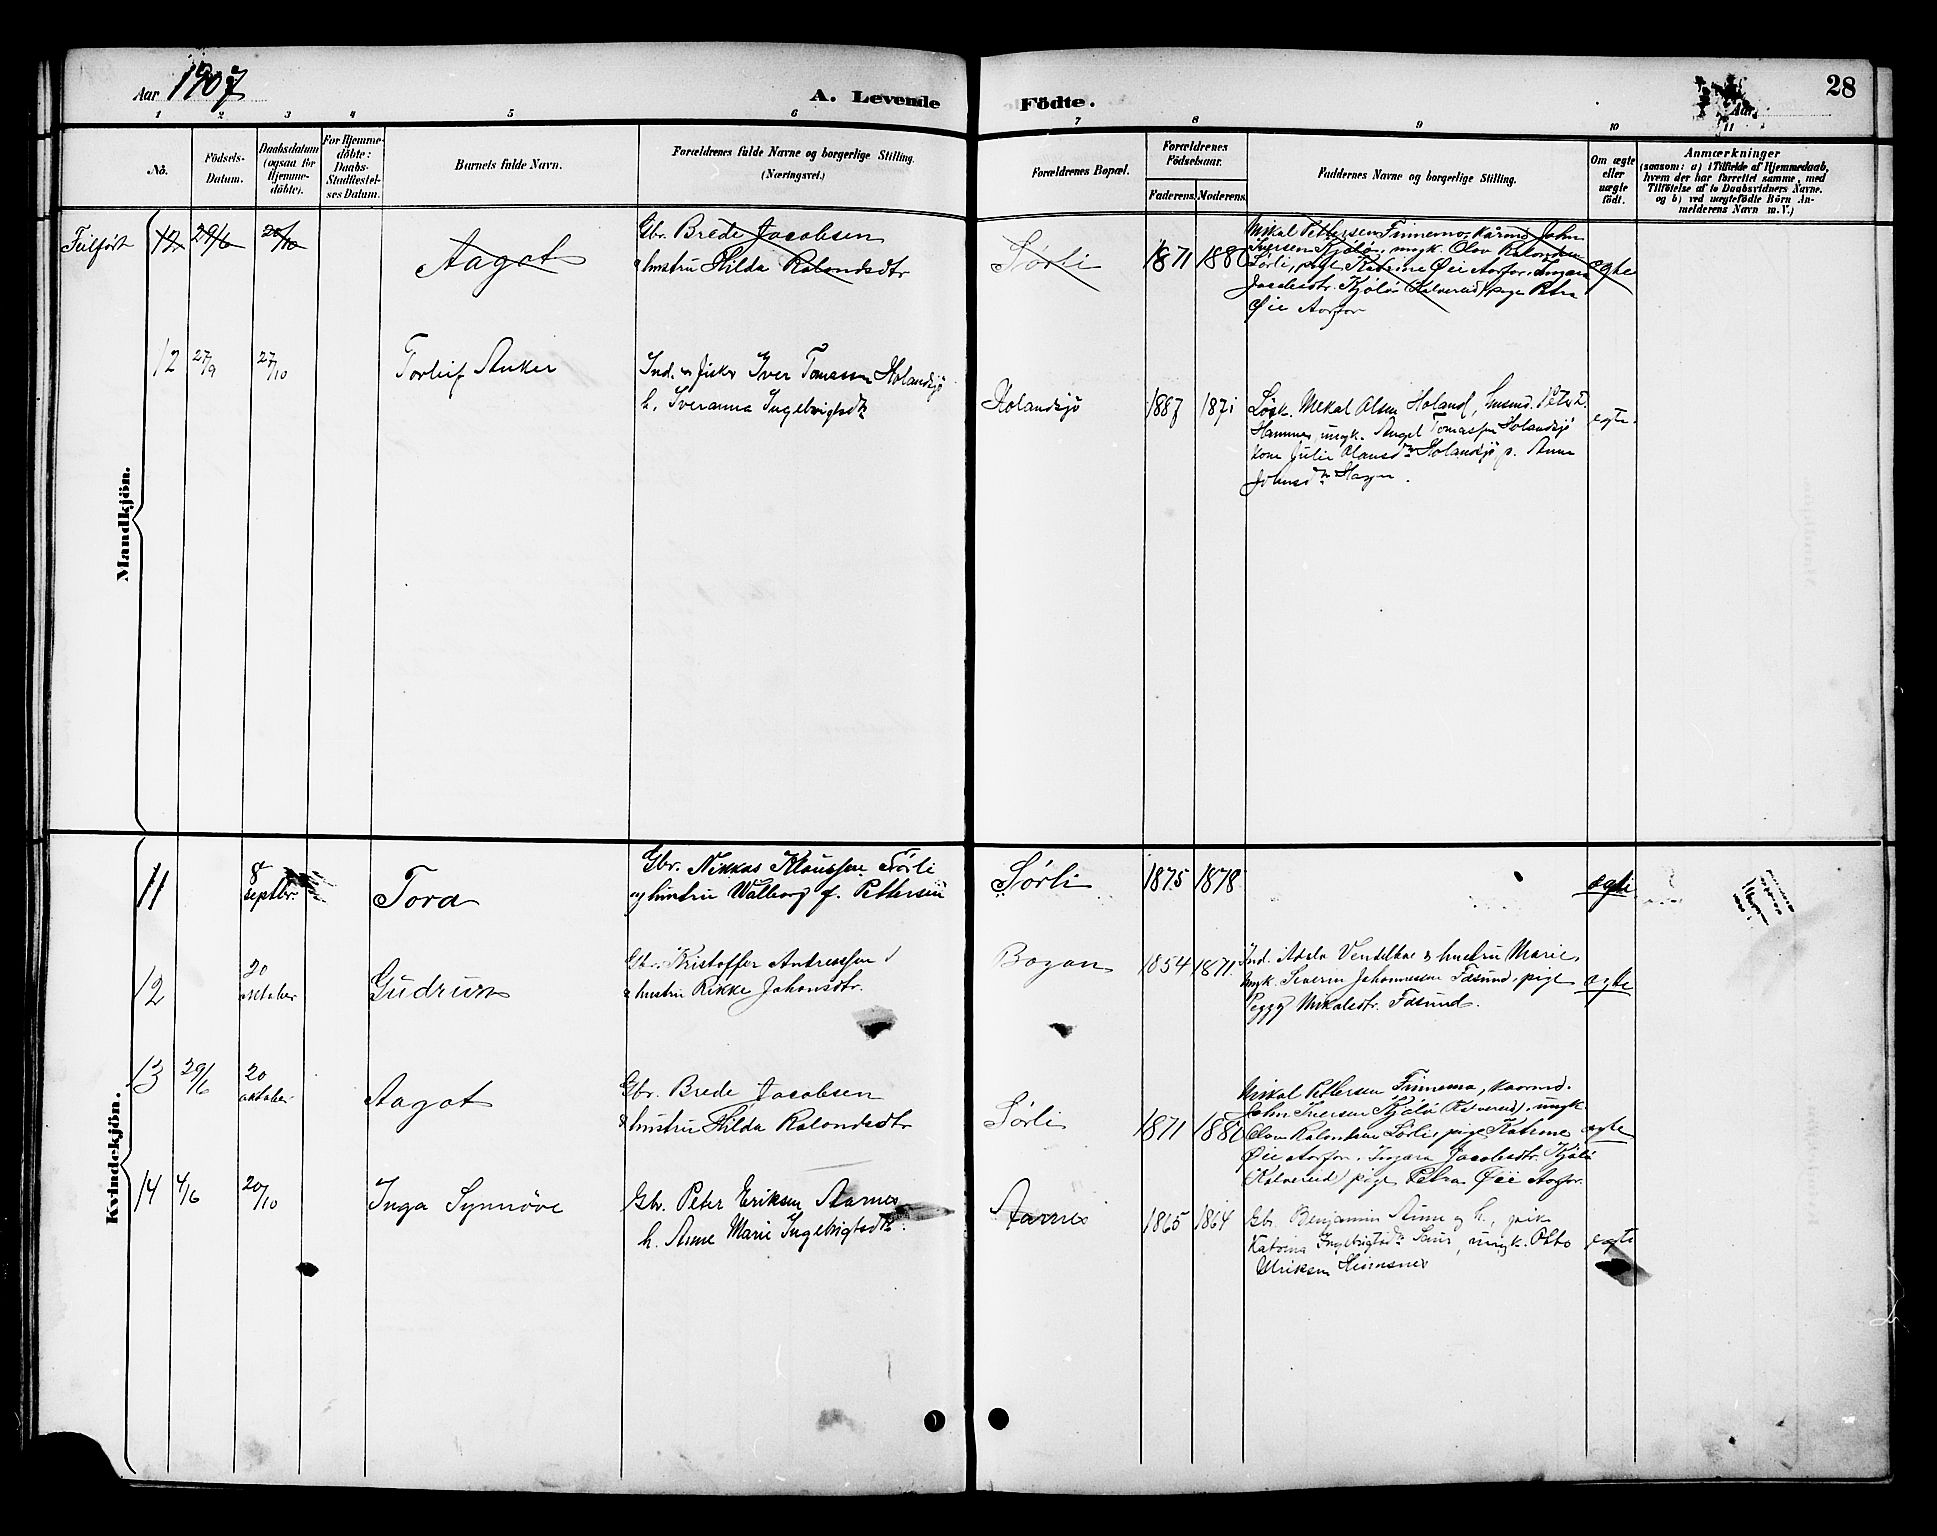 Aar 1907
A. Levende
Födte.
Aar
28
1 2 3 4 5 6 7 8 9 10 11
No.
Födsels-
Datum.
Daabsdatum
(ogsaa for
Hjemme-
döbte).
For Hjemme-
döbte:
Daabs-
Stadfæstel-
ses Datum.
Barnets fulde Navn.
Forældrenes fulde Navne og borgerlige Stilling.
(Næringsvei.)
Forældrenes Bopæl.
Forældrenes
Födselsaar.
Faderens. Moderens.
Faddernes Navne og borgerlige Stilling.
Om ægte
eller
uægte
födt.
Anmærkninger
(saasom: a) i Tilfælde af Hjemmedaab,
hvem der har forrettet samme, med
Tilföielse af to Daabsvidners Navne.
og b) ved uægtefödte Börn An-
melderens Navn m. V.)
Mandkjön.
12 29/6 20/10
Aagot
Gbr. Brede Jacobsen
& hustru Hilda Rolandsdtr
Sørli
1871 188
Mikal Pettersen Finnemo, kårmd John
Iversen Kjölö, ungk. Olov
Sörli, pige Katrine Øie Aorfor, Ingara
Jacobsdtr. Kjölö (Kalvereid) pige Petra
Øie Aorfor
egte
12 27/9 27/10
Torleif Anker
Ind. og fisker Iver Tomassen Holandsjö
h. Iveranna Ingebrigtsdtr
Holandsjö
1887 1871
Løsk. Mekal Olsen Holand, husmd. Peter
Hamnes, ungk. Angel Tomassen Holandsjö
kone Julie Olausdtr Holandsjö p. Anna
Johnsdtr Hagen.
egte.
Kvindekjön.
11
8
septbr.
Tora
Gbr. Nikkas Klaussen Sörli
og hustru Walborg f. Pettersen
Sörli
1875 1878
egte
12
20
oktober
Gudrun
Gbr. Kristoffer Andreassen
& hustru Rikke Johansdtr.
Bogan
1854 1871
Ind. Adslo & hustru Marie,
ungk. Severin Johannessen Faesund, pige
Peggy Mikalsdtr. Faesund.
egte
13 29/6
20
oktober
Aagot
Gbr. Brede Jacobsen
& hustru Hilda Rolandsdtr
Sörli
1871 188
Mikal Pettersen Finnemo, kaarmd.
John Iversen Kjölö (Kalvereid), ungk.
Olov Sörli, pige Katrine
Øie Aorfor, Ingara Jacobsdtr. Kjölö
(Kalvereid) pige Petra Øie Aorfor.
egte
14 4/6 20/10
Inga Synnöve
Gbr. Peter Eriksen Aarnes
h. Anne Marie Ingebrigtsdtr.
Aarnes
1865 1864
Gbr. Benjamin Aune og h., pike
Katrina Ingebrigtsdtr , ungk. Otto
Ulriksen
egte